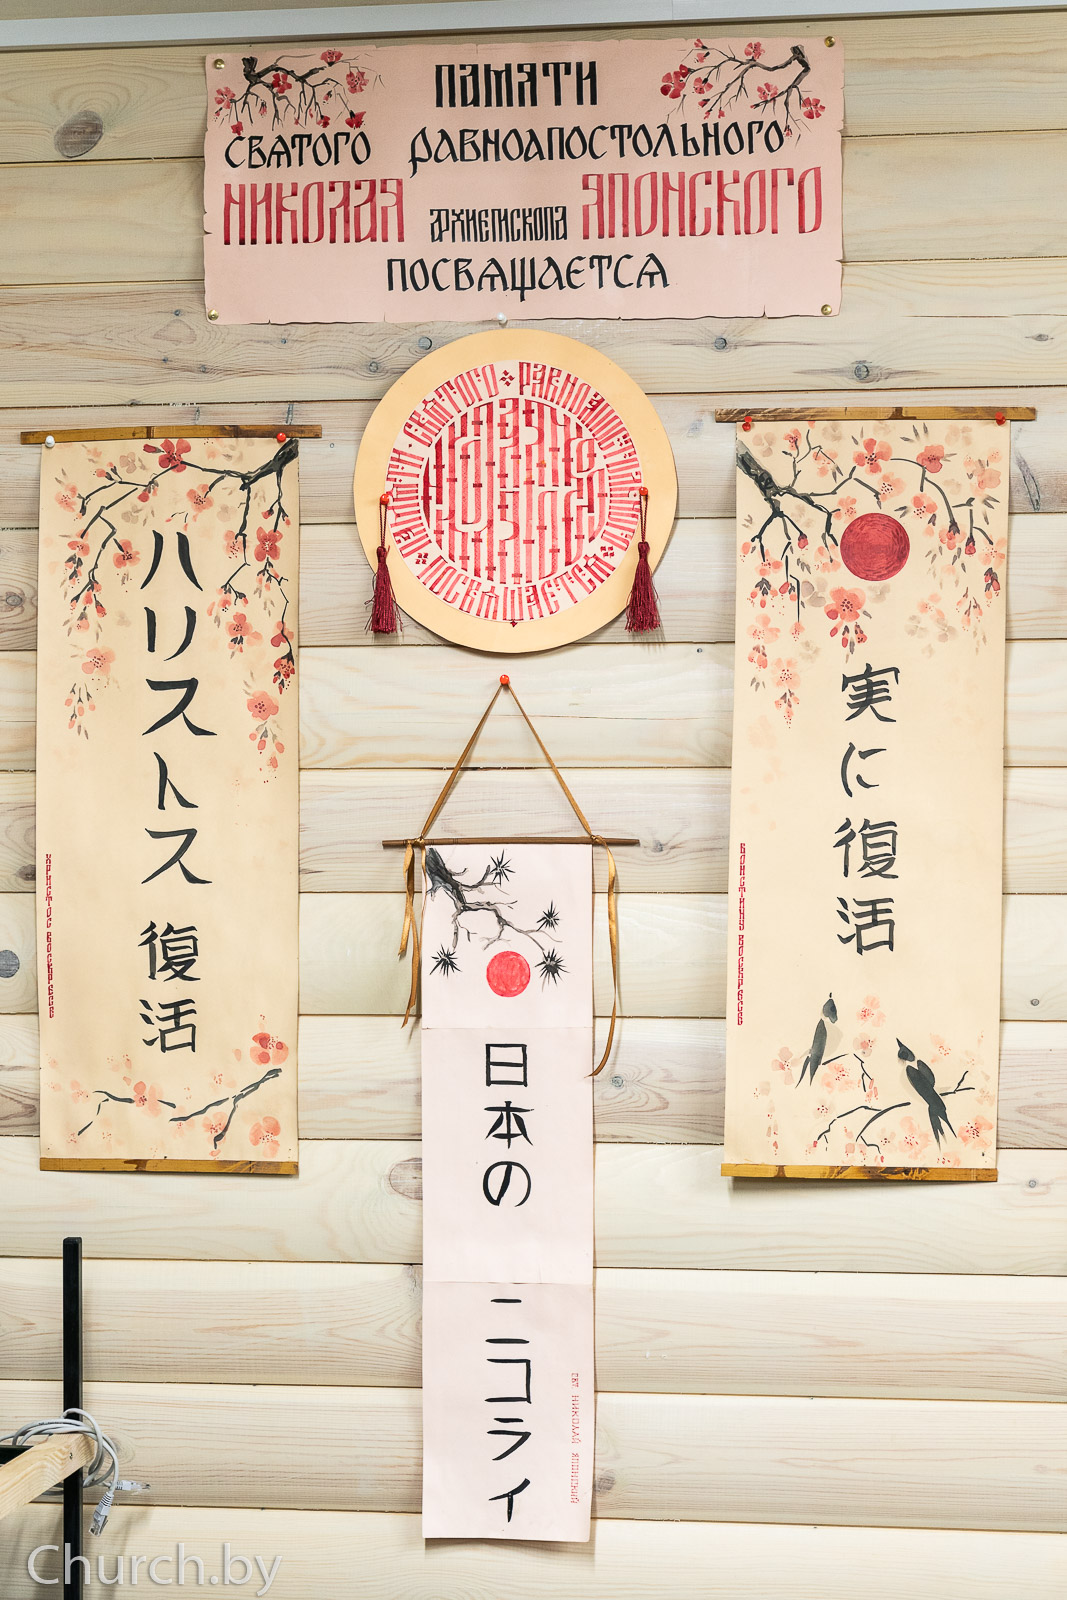 ПАМЯТИ
СВЯТОГО РАВНОАПОСТОЛЬНОГО
НИКОЛАЯ АРХИЕПИСКОПА ЯПОНСКОГО
ПОСВЯЩАЕТСЯ
СВЯТОГО РАВНОАПОСТОЛЬНОГО
ПОСВЯЩАЕТСЯ
ПАМЯТИ
ハリストス 復活
ХРИСТОС ВОСКРЕСЕ
実に復活
ВОИСТИНУ ВОСКРЕСЕ
日本の
ニコライ
СВТ НИКОЛАЙ ЯПОНСКИЙ
Church.by